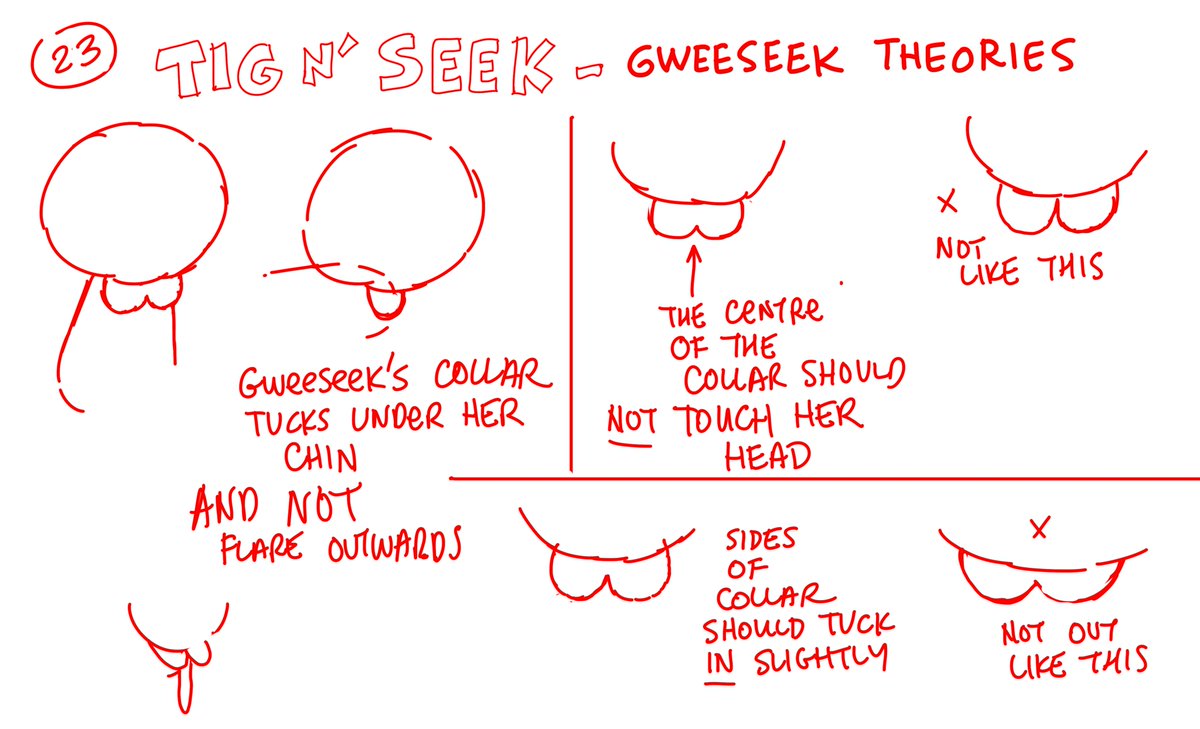 23
TIG N' SEEK - GWEESEEK THEORIES
GWEESEEK'S COLLAR
TUCKS UNDER HER
CHIN
AND NOT
FLARE OUTWARDS
THE CENTRE
OF THE
COLLAR SHOULD
NOT TOUCH HER
HEAD
X
NOT
LIKE THIS
SIDES
OF
COLLAR
SHOULD TUCK
IN SLIGHTLY
X
NOT OUT
LIKE THIS